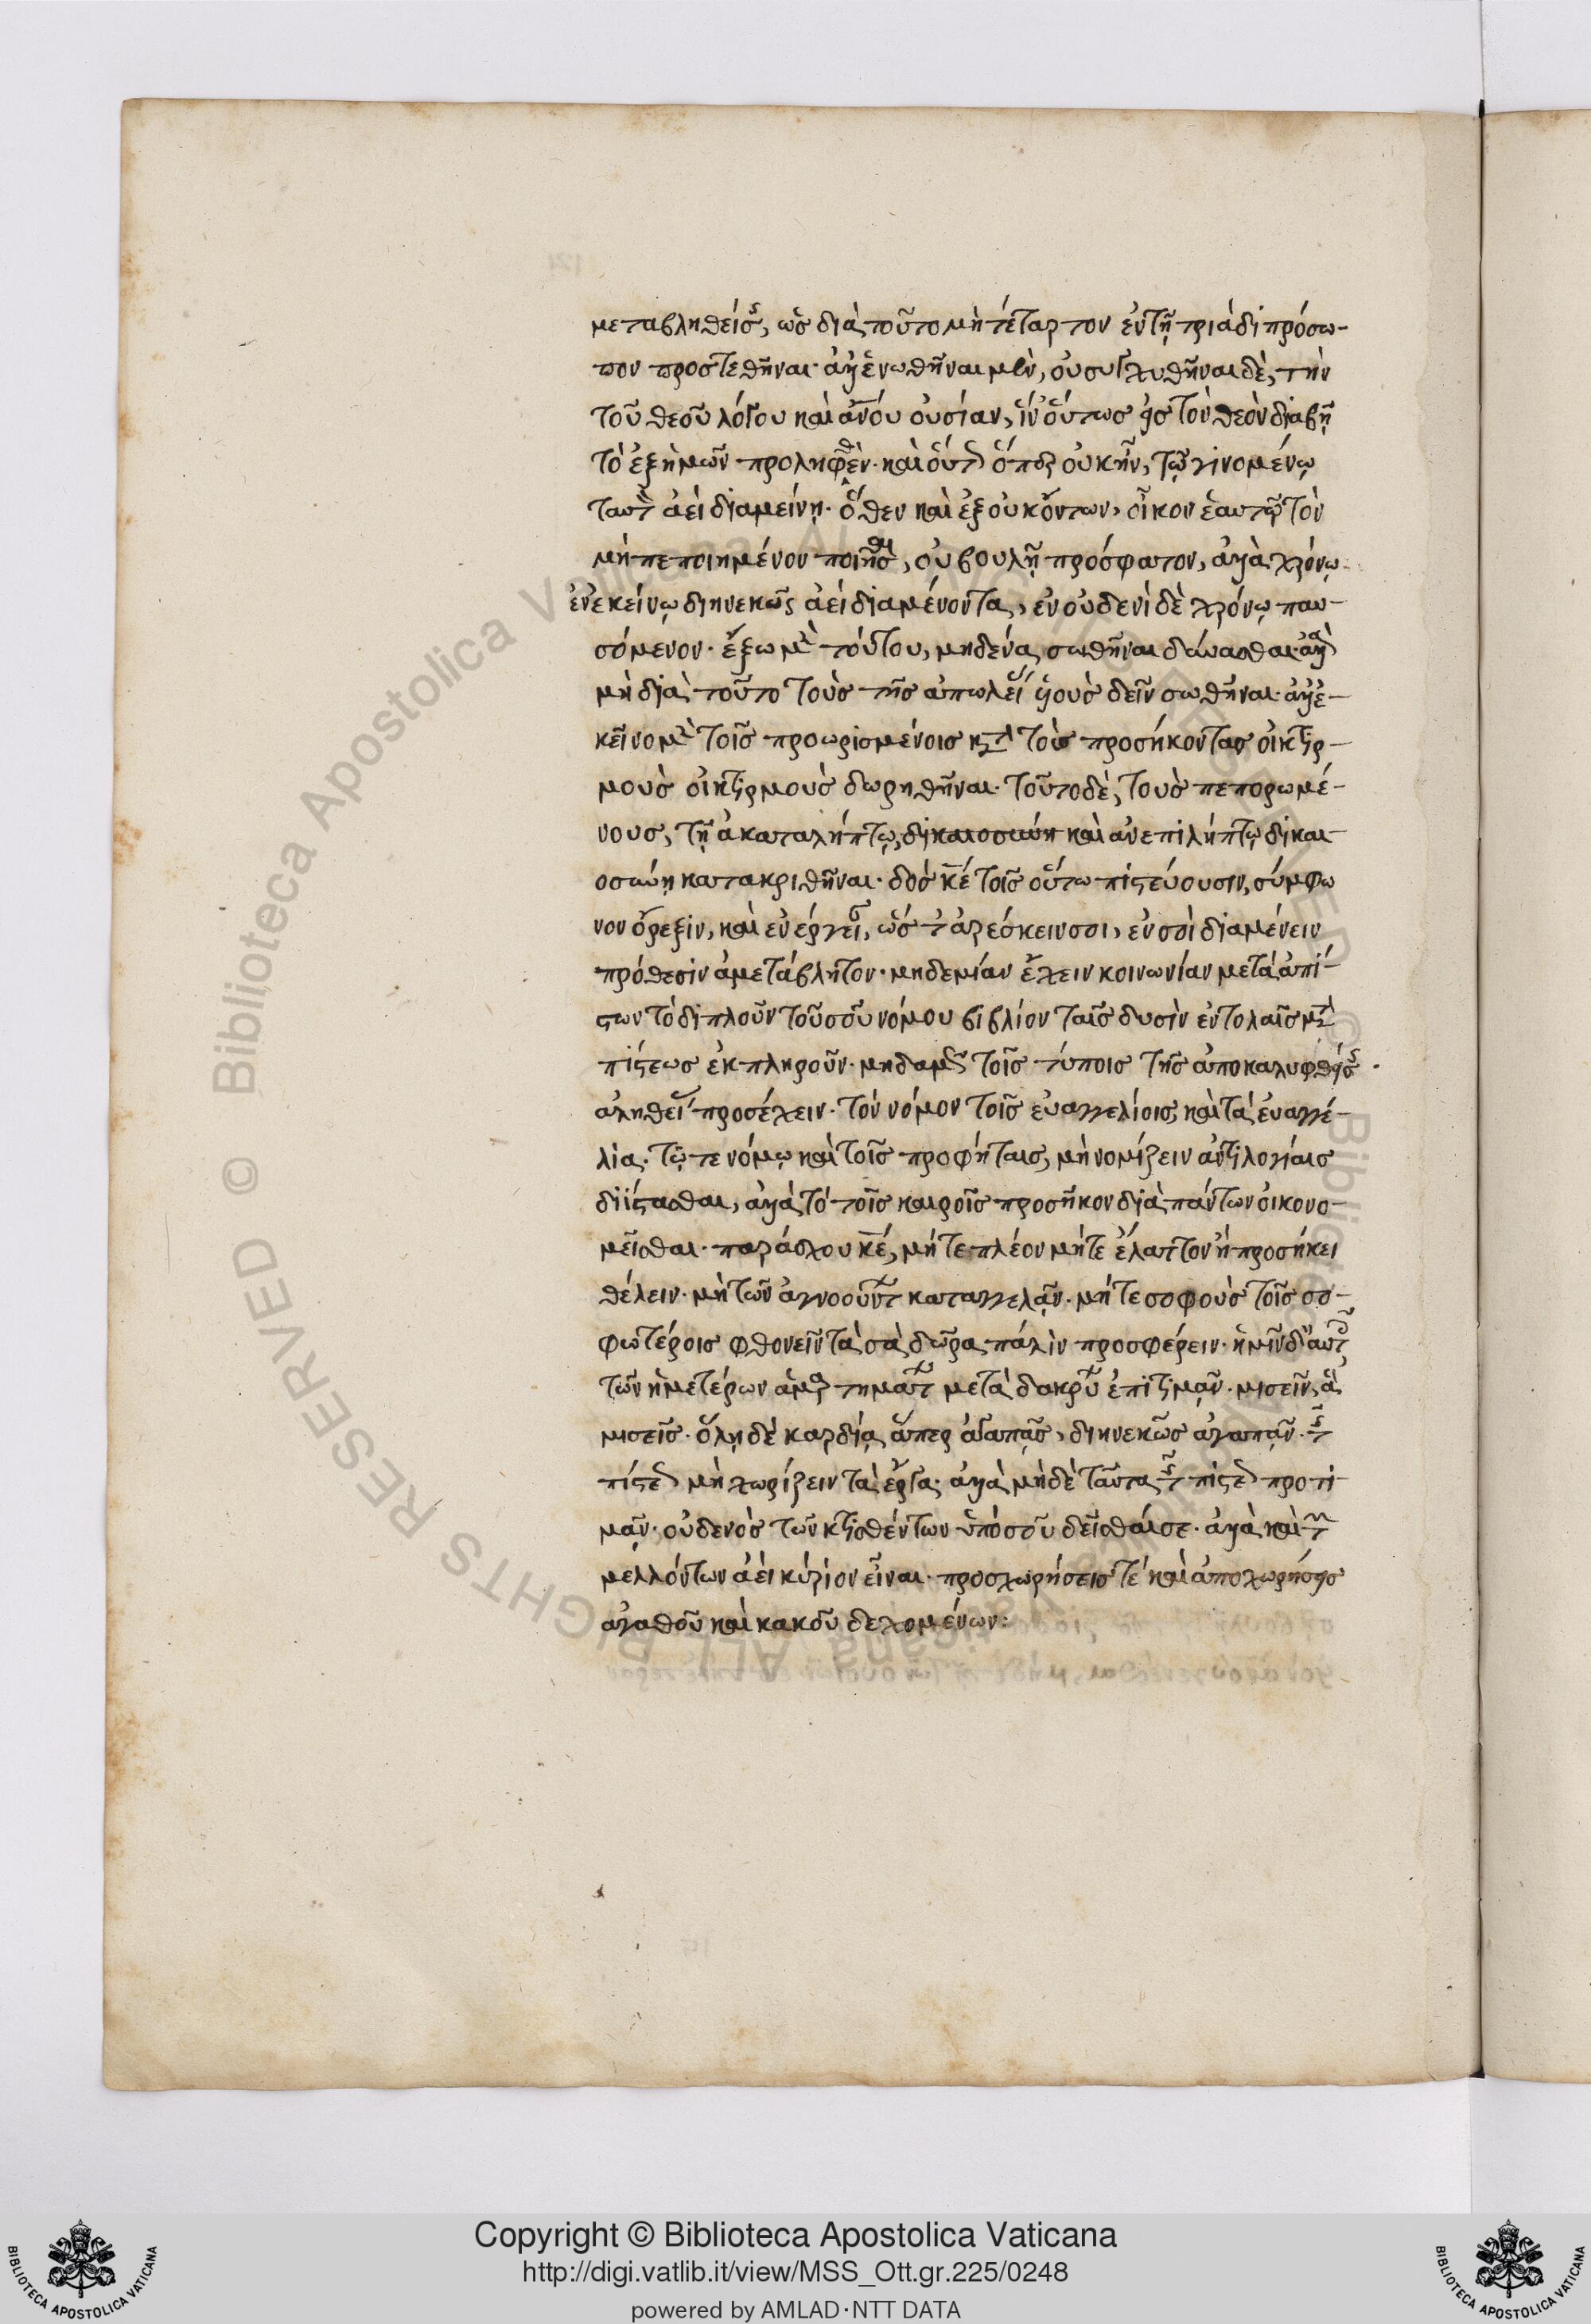 μεταβληθείσης, ὡς διὰ τοῦτο μὴ τέταρτον ἐν τῇ τριάδι πρόσω-
πον προστεθῆναι· ἀλλ' ἑνωθῆναι μὲν, οὐ συγχυθῆναι δὲ, τὴν
τοῦ θεοῦ λόγου καὶ ἀνου οὐσίαν, ἵν' οὕτως εἰς τὸν θεὸν διαβῇ
τὸ ἐξ ἡμῶν προληφθὲν· καὶ οὕτως ὅπερ οὐκ ἦν, τῷ γινομένῳ
ταυτ ἀεὶ διαμείνῃ· ὅθεν καὶ ἐξ οὐκ ὄντων, οἶκον ἑαυτῷ τὸν
μὴ πεποιημένον ποιῆσαι, οὐ βουλῇ πρόσφατον, ἀλλὰ χρόνῳ
ἐν ἐκείνῳ διηνεκῶς ἀεὶ διαμένοντα, ἐν οὐδενὶ δὲ χρόνῳ παυ-
σόμενον· ἔξω μὲν τούτου, μηδένα σωθῆναι δύνασθαι· ἀλλὰ
μὴ διὰ τοῦτο τοὺς τῆς ἀπωλείας υἱοὺς δεῖν σωθῆναι· ἀλλ' ἐ-
κεῖνο μὲν τοῖς προωρισμένοις κατὰ τοὺς προσήκοντας οἰκτιρ-
μοὺς οἰκτιρμοὺς δωρηθῆναι· τοῦτο δὲ, τοὺς πεπορωμέ-
νους, τῇ ἀκαταλήπτῳ δικαιοσύνῃ καὶ ἀνεπιλήπτῳ δικαι-
οσύνῃ κατακριθῆναι· δὸς κε τοῖς οὕτω πιστεύουσιν, σύμφω
νον ὄρεξιν, καὶ ἐνέργειαν, ὥστ' ἀρέσκειν σοι, ἐν σοὶ διαμένειν
πρόθεσιν ἀμετάβλητον· μηδεμίαν ἔχειν κοινωνίαν μετὰ ἀπί-
στων τὸ διπλοῦν τοῦ σοῦ νόμου βιβλίον ταῖς δυσὶν ἐντολαῖς μετὰ
πίστεως ἐκπληροῦν· μηδαμῶς τοῖς τύποις τῆς ἀποκαλυφθείσης
ἀληθείας προσέχειν· τὸν νόμον τοῖς εὐαγγελίοις, καὶ τὰ εὐαγγέ-
λια· τῷ τε νόμῳ καὶ τοῖς προφήταις, μὴ νομίζειν ἀντιλογίαις
διίστασθαι, ἀλλὰ τὸ τοῖς καιροῖς προσῆκον διὰ πάντων οἰκονο-
μεῖσθαι· παράσχου κε, μήτε πλέον μήτε ἔλαττον ἢ προσήκει
θέλειν· μὴ τῶν ἀγνοούντων καταγγελᾷν· μήτε σοφοὺς τοῖς σο-
φωτέροις φθονεῖν τὰ σὰ δῶρα πάλιν προσφέρειν· ἡμῖν δ' αὐτοῖς
τῶν ἡμετέρων ἁμαρτημάτων μετὰ δακρύων ἐπιτιμᾷν· μισεῖν, ἃ
μισεῖς· ὅλῃ δὲ καρδίᾳ ἅπερ ἀγαπᾷς, διηνεκῶς ἀγαπᾷν· τῆς
πίστεως μὴ χωρίζειν τὰ ἔργα· ἀλλὰ μηδὲ ταῦτα τῆς πίστεως προτι
μᾷν· οὐδενὸς τῶν κτισθέντων ὑπὸ σοῦ δεῖσθαί σε· ἀλλὰ καὶ τῶν
μελλόντων ἀεὶ κύριον εἶναι· προσχωρήσεις τέ καὶ ἀποχωρήσεις
ἀγαθοῦ καὶ κακοῦ δεχομένων:
Copyright © Biblioteca Apostolica Vaticana
http://digi.vatlib.it/view/MSS_Ott.gr.225/0248
powered by AMLAD·NTT DATA
BIBLIOTECA APOSTOLICA VATICANA
BIBLIOTECA APOSTOLICA VATICANA